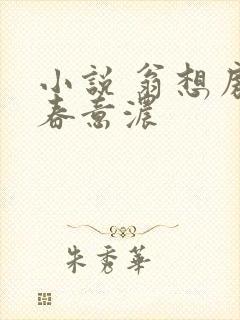 小說 翁想
春意濃
朱秀華